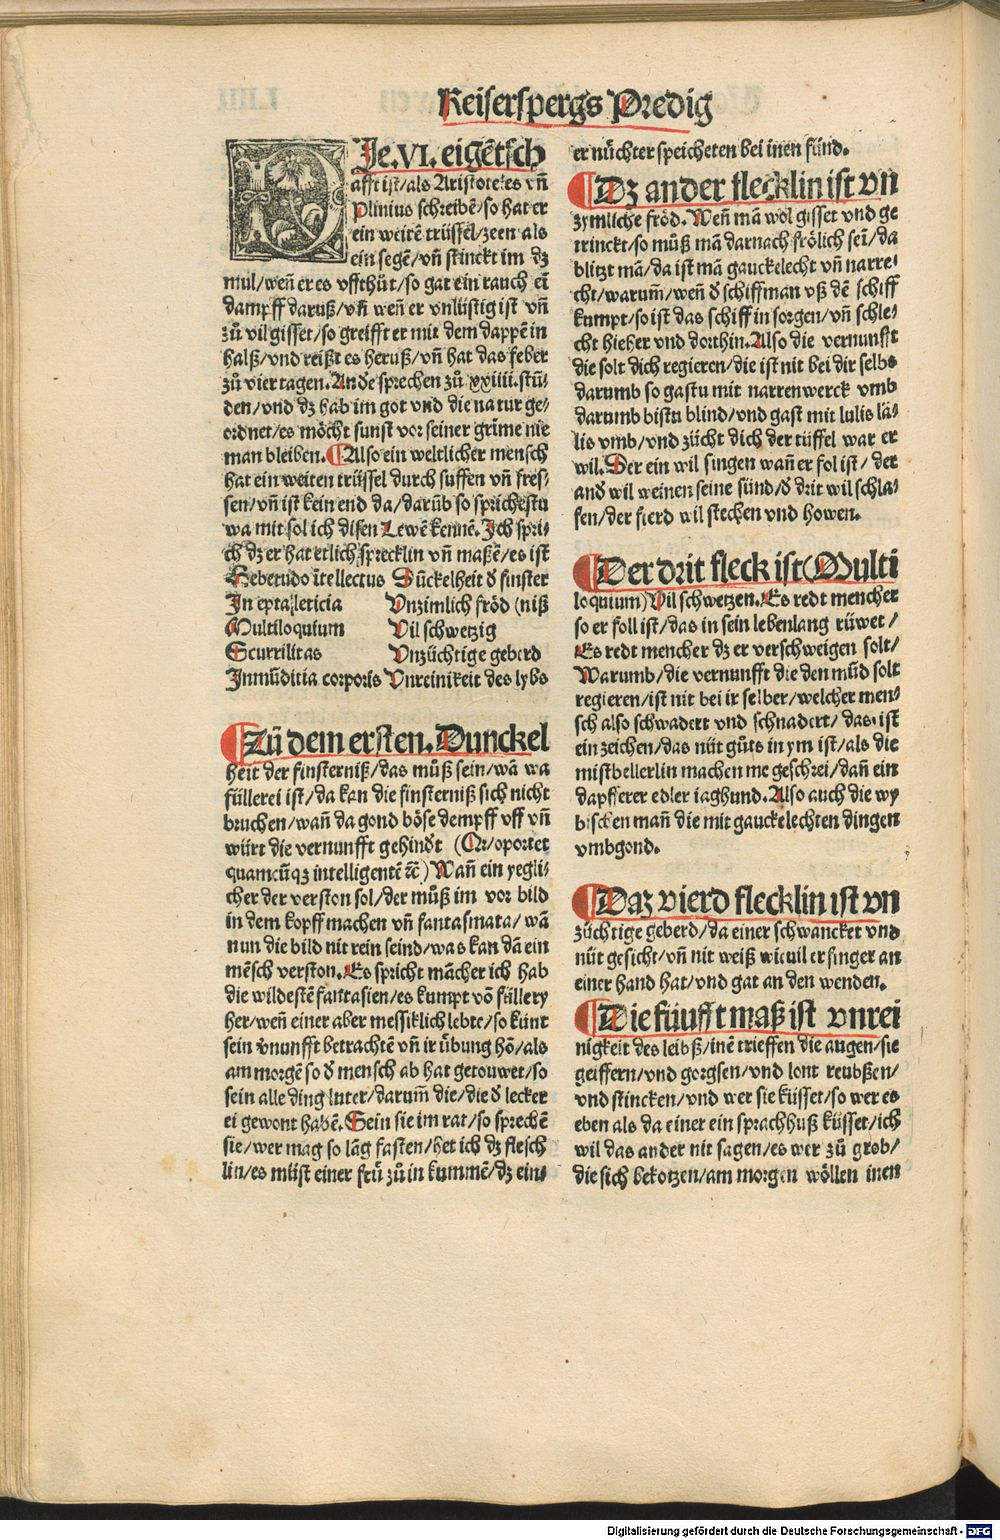 Keiserspergs Predig
DJe.VI.eigẽtsch
afft ist/als Aristoteles vñ
Plinius schreibẽ/so hat er
ein weitẽ trüssel/zeen als
ein segẽ/vñ stinckt im dz
mul/weñ er es vffthůt/so gat ein rauch eĩ
dampff daruß/vñ weñ er vnlüstig ist vñ
zů vil gisset/so greifft er mit dem dappẽ in
halß/vnd reißt es heruß/vñ hat das feber
zů vier tagen.Andẽ sprechen zů xxiiii.stũ/
den/vnd dz hab im got vnd die natur ge/
ordnet/es möcht sunst vor seiner grime nie
man bleiben.¶Also ein weltlicher mensch
hat ein weiten trüssel durch suffen vñ fres/
sen/vñ ist kein end da/darũb so sprichestu
wa mit sol ich disen Lewẽ kennẽ.Jch spri/
ch dz er hat etlich sprecklin vñ maßẽ/es ist
Hebetudo ĩtellectus Dũckelheit d̃ finster
In epta leticia Vnzimlich fröd (niß
Multiloquium Vil schwetzig
Scurrilitas Vnzüchtige geberd
Inmũditia corporis Vnreinikeit des lybs
¶Zů dem ersten.Dunckel
heit der finsterniß/das můß sein/wã wa
füllerei ist/da kan die finsterniß sich nicht
bruchen/wañ da gond böse dempff vff vñ
würt die vernunfft gehindt (Qr/oportet
quamcũqz intelligentẽ ⁊c̃) Wañ ein yegli/
cher der verston sol/der můß im vor bild
in dem kopff machen vñ fantasmata/wã
nun die bild nit rein seind/was kan dã ein
mẽsch verston.Es spricht mãcher ich hab
die wildestẽ fantasien/es kumpt võ füllery
her/weñ einer aber messiklich lebte/so künt
sein v̉nunfft betrachtẽ vñ ir übung hõ/als
am morgẽ so d̃ mensch ab hat getouwet/so
sein alle ding luter/darum̃ die/die d̃ lecker
ei gewont habẽ.Sein sie im rat/so sprechẽ
sie/wer mag so lãg fasten/het ich dz flesch
lin/es můst einer frů zů in kummẽ/dz ein/
er nůchter speicheten bei inen fünd.
¶Dz ander flecklin ist vn
zymliche fröd.Weñ mã wol gisset vnd ge
trinckt/so můß mã darnach frölich seĩ/da
blitzt mã/da ist mã gauckelecht vñ narre/
cht/warum̃/weñ d̃ schiffman vß dẽ schiff
kumpt/so ist das schiff in sorgen/vñ schle/
cht hieher vnd dorthin.Also die vernunfft
die solt dich regieren/die ist nit bei dir selbs
darumb so gastu mit narrenwerck vmb
darumb bistu blind/vnd gast mit lulis lä/
lis vmb/vnd zücht dich der tüffel war er
wil.Der ein wil singen wañ er fol ist/ der
and̃ wil weinen seine sünd/d̃ drit wil schla/
fen/der fierd wil stechen vnd howen.
¶Der drit fleck ist(Multi
loquium)Vil schwetzen.Es redt mencher
so er foll ist/das in sein lebenlang rüwet/
Es redt mencher dz er verschweigen solt/
Warumb/die vernunfft die den mũd solt
regieren/ist nit bei ir selber/welcher men/
sch also schwadert vnd schnadert/ das ist
ein zeichen/das nüt gůts in ym ist/als die
mistbellerlin machen me geschrei/dañ ein
dapfferer edler iaghund.Also auch die wy
bischen mañ die mit gauckelechten dingen
vmbgond.
¶Daz vierd flecklin ist vn
züchtige geberd/da einer schwancket vnd
nüt gesicht/vñ nit weiß wieuil er finger an
einer hand hat/vnd gat an den wenden.
¶Die füufft maß ist vnrei
nigkeit des leibß/inẽ trieffen die augen/sie
geiffern/vnd gorgsen/vnd lont reubßen/
vnd stincken/vnd wer sie küsset/so wer es
eben als da einer ein sprachhuß küsset/ich
wil das ander nit sagen/es wer zů grob/
die sich bekotzen/am morgen wöllen inen
Digitalisierung gefördert durch die Deutsche Forschungsgemeinschaft - DFG